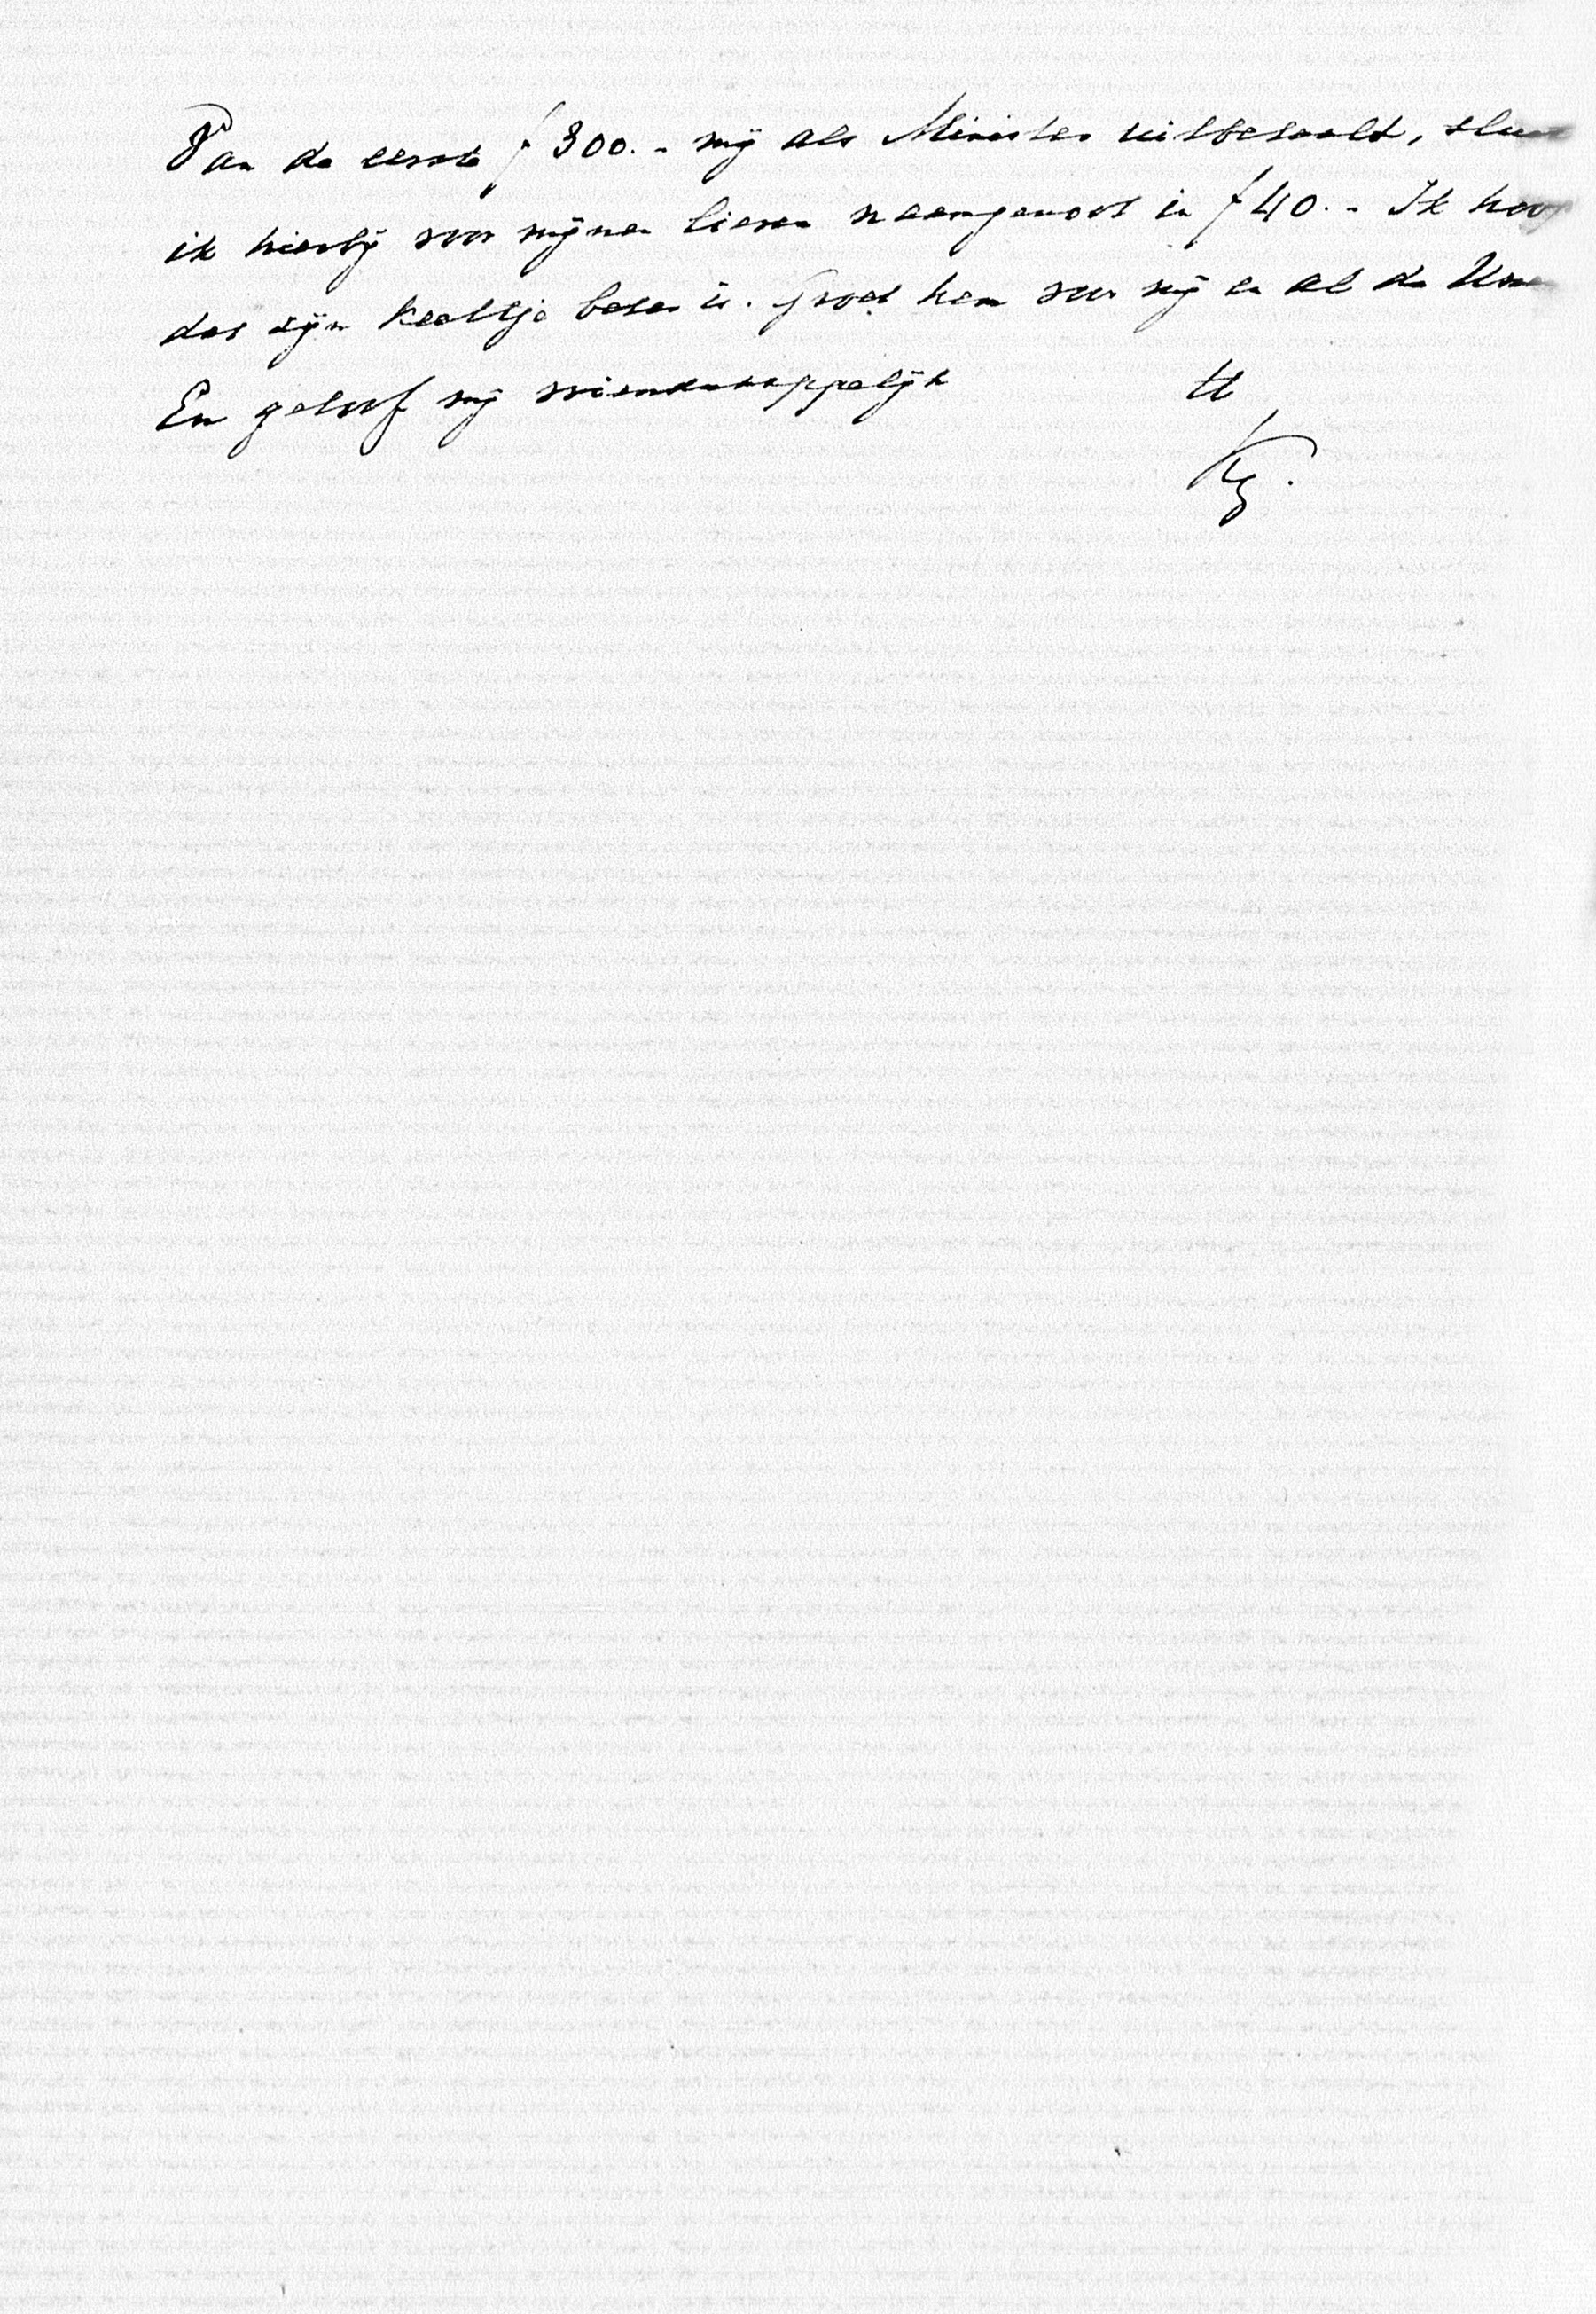 Van de eerste f 300.- mij als Minister uitbetaald, sluit
ik hierbij voor mijnen lieven naamgenoot in f 40.- Ik hoop
dat zijn keeltje beter is. Groet hem voor mij en al de Uwen
En geloof mij vriendschappelijk
tt
Kg.